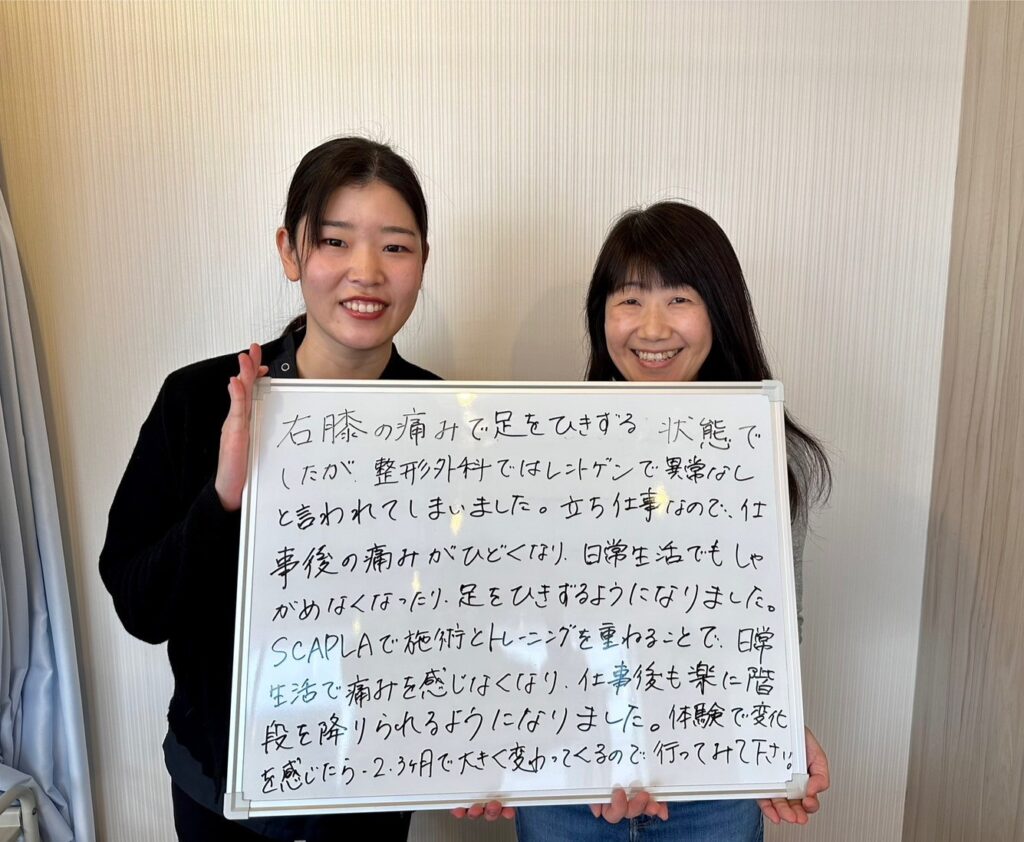 右膝の痛みで足をひきずる 状態で
したが、整形外科ではレントゲンで異常なし
と言われてしまいました。立ち仕事なので、仕
事後の痛みがひどくなり、日常生活でもしゃ
がめなくなったり、足をひきずるようになりました。
SCAPLAで施術とトレーニングを重ねることで、日常
生活で痛みを感じなくなり、仕事後も楽に階
段を降りられるようになりました。体験で変化
を感じたら、2.3ヶ月で大きく変わってくるので、行ってみて下さい!